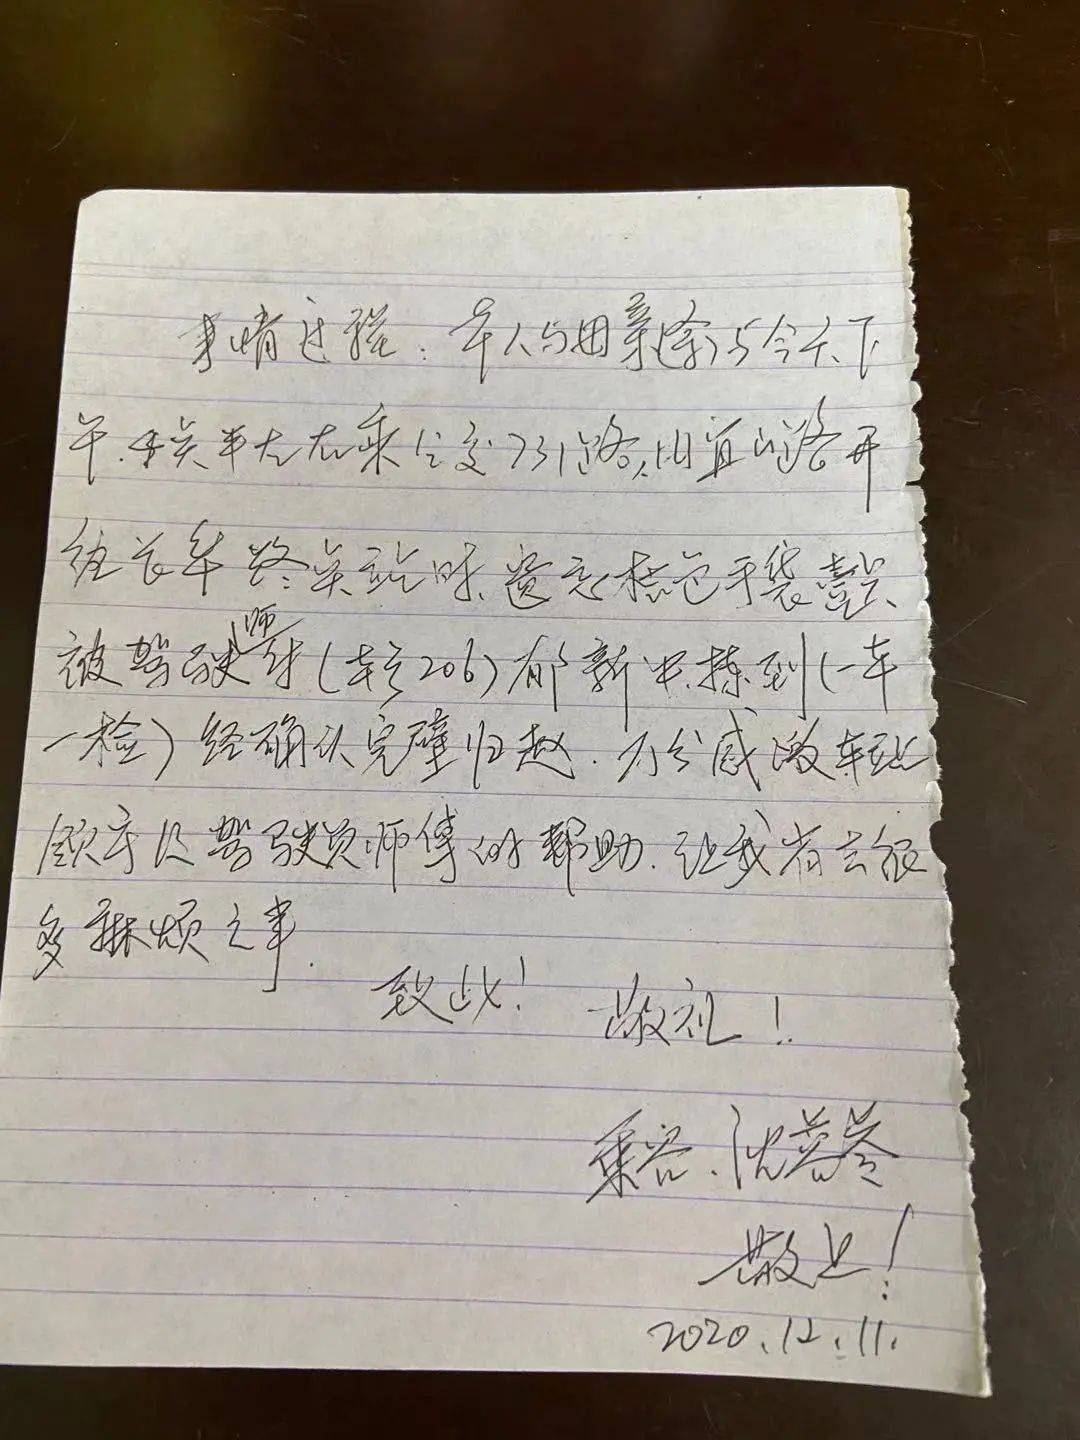 事情过程：本人与母亲(徐)与今天下
午.4点半左右乘公交731路,由宜山路开
往长华路终点站时遗忘棕色手袋壹只
被驾驶师付(车号206)郁新中.拣到(一车
一检)经确认完璧归赵.万分感激车站
领导及驾驶员师傅的帮助.让我省去很
多麻烦之事.
致此！ 敬礼！
乘客.沈蓉苓
敬上！
2020.12.11.